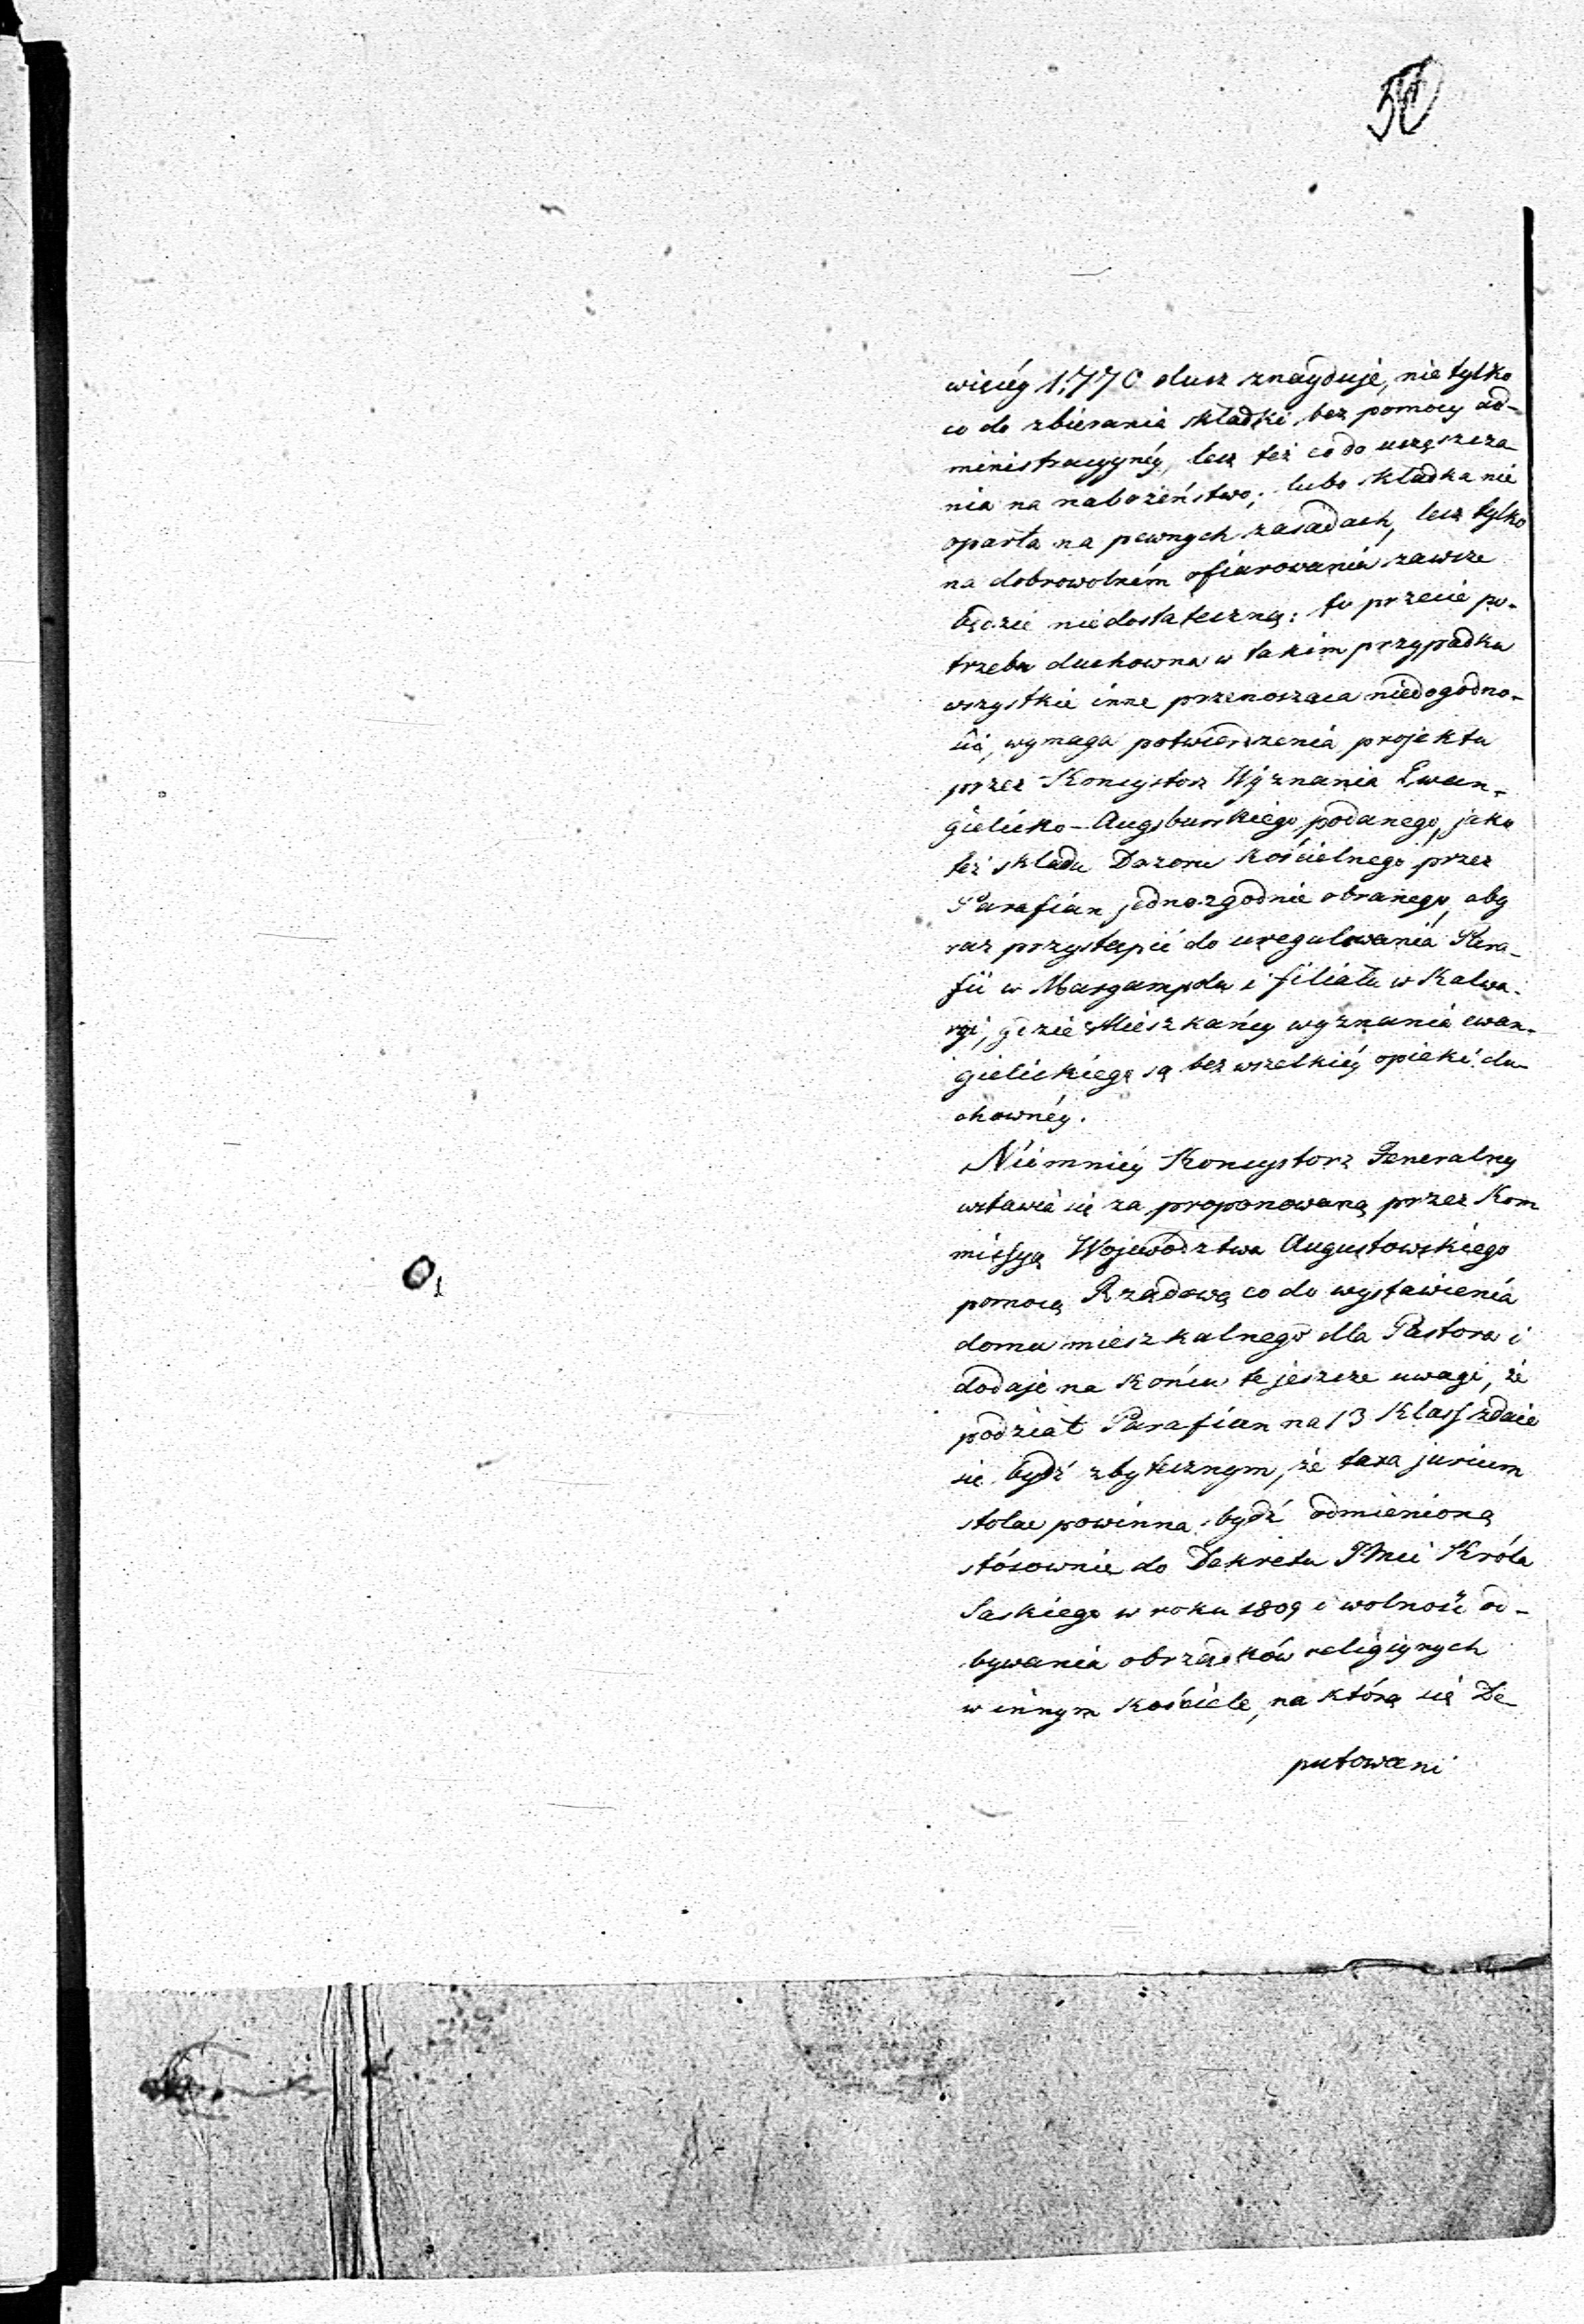 więcéy 1,770 dusz znayduje, nie tylko
co do zbierania składki bez pomocy ad-
ministracyynéy, lecz też co do uczęszcza-
nia na nabożeństwo; lubo składka nie
oparta na pewnych zasadach, lecz tylko
na dobrowolném ofiarowaniu zawsze
będzie niedostateczną: to przecie po-
trzeba duchowna w takim przypadku
wszystkie inne przenosząca niedogodno-
ści, wymaga potwierdzenia projektu
przez Konsystorz Wyznania Ewan-
gielicko-Augsburskiego podanego, jako
też składu Dozoru Kościelnego przez
Parafian jednozgodnie obranego, aby
raz przystąpić do uregulowania Para-
fii w Maryampolu i filiału w Kalwa-
ryi, gdzie Mieszkańcy wyznania ewan-
gielickiego są bez wszelkiéy opieki du-
chownéy.
Niemniéy Konsystorz Generalny
wstawia się za proponowaną przez Kom
missyą Województwa Augustowskiego
pomocą Rządową co do wystawienia
domu mieszkalnego dla Pastora i
dodaje na końcu te jeszcze uwagi, że
podział Parafian na 13 Klass zdaie
się bydź zbytecznym, że taxa jurium
stolae powinna bydź odmienioną
stósownie do Dekretu JKMci Króla
Saskiego w roku 1809 i wolność od-
bywania obrządków religiynych
w innym kościele, na którą się De-
putowani